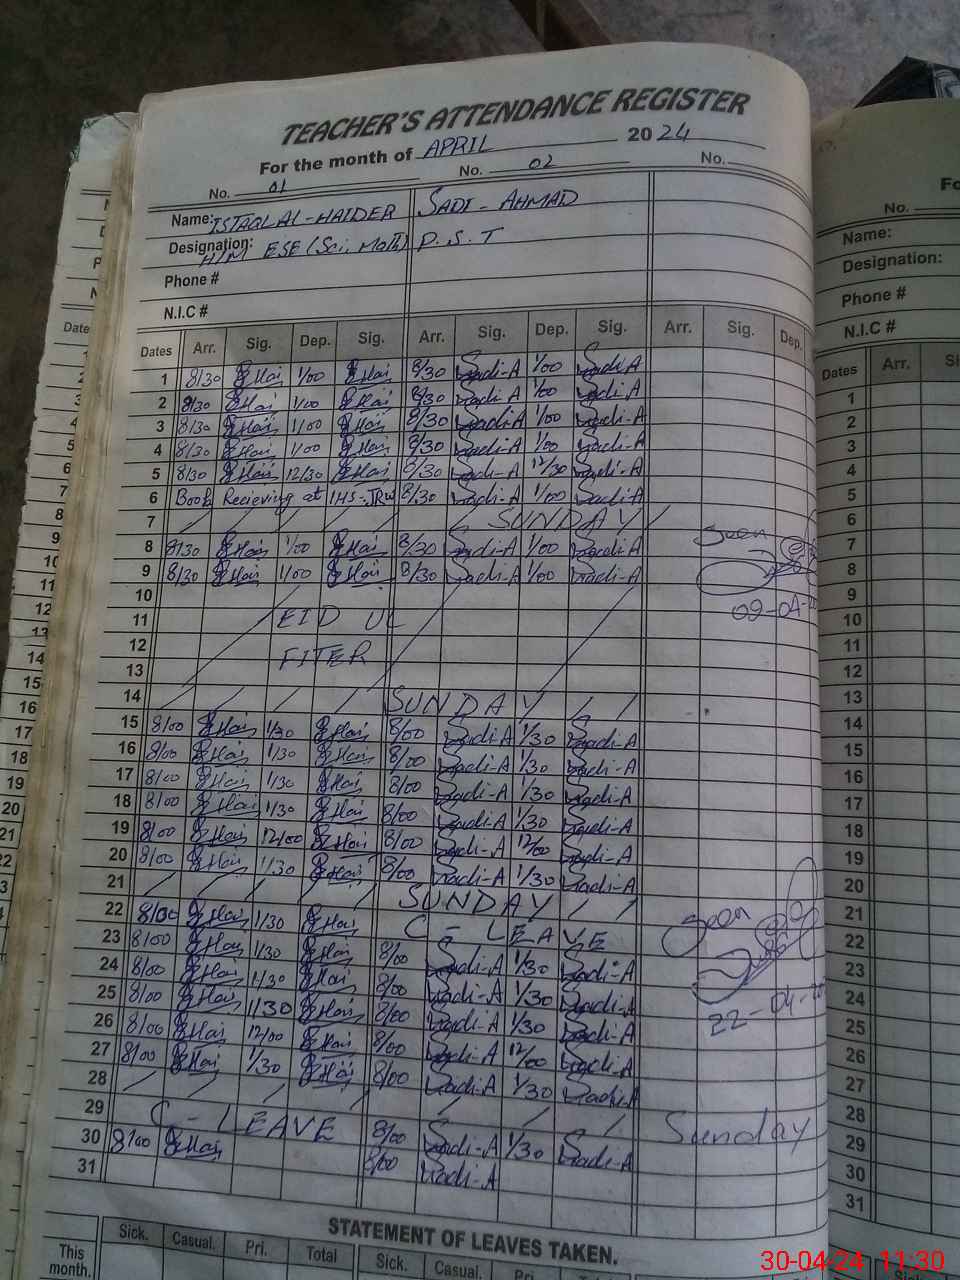 TEACHER'S ATTENDANCE REGISTER
For the month of APRIL 2024
No. 01 No. 02 No.
Name: ISTAQLAL-HAIDER SADI-AHMAD
Designation: H/M ESE (Sci, Math) P.S.T
Phone #
N.I.C #
Dates Arr. Sig. Dep. Sig. Arr. Sig. Dep. Sig. Arr. Sig. Dep.
1 8/30 1/00 8/30 Sadi-A 1/00 Sadi-A
2 8/30 1/00 8/30 Sadi-A 1/00 Sadi-A
3 8/30 1/00 8/30 Sadi-A 1/00 Sadi-A
4 8/30 1/00 8/30 Sadi-A 1/00 Sadi-A
5 8/30 12/30 8/30 Sadi-A 12/30 Sadi-A
6 Book Recieving at IHS-JRW 8/30 Sadi-A 1/00 Sadi-A
7 SUNDAY
8 8/30 1/00 8/30 Sadi-A 1/00 Sadi-A Seen
9 8/30 1/00 8/30 Sadi-A 1/00 Sadi-A
10 09-04-
11 EID UL
12 FITER
13
14 SUNDAY
15 8/00 1/30 8/00 Sadi-A 1/30 Sadi-A
16 8/00 1/30 8/00 Sadi-A 1/30 Sadi-A
17 8/00 1/30 8/00 Sadi-A 1/30 Sadi-A
18 8/00 1/30 8/00 Sadi-A 1/30 Sadi-A
19 8/00 12/00 8/00 Sadi-A 12/00 Sadi-A
20 8/00 1/30 8/00 Sadi-A 1/30 Sadi-A
21 SUNDAY
22 8/00 1/30 C-LEAVE Seen
23 8/00 1/30 8/00 Sadi-A 1/30 Sadi-A
24 8/00 1/30 8/00 Sadi-A 1/30 Sadi-A
25 8/00 1/30 8/00 Sadi-A 1/30 Sadi-A 22-04-20
26 8/00 12/00 8/00 Sadi-A 12/00 Sadi-A
27 8/00 1/30 8/00 Sadi-A 1/30 Sadi-A
28 Sunday
29 C-LEAVE 8/00 Sadi-A 1/30 Sadi-A
30 8/00 8/00 Sadi-A
31
STATEMENT OF LEAVES TAKEN.
Sick. Casual. Pri. Total Sick. Casual. Pri.
This month.
No.
Name:
Designation:
Phone #
N.I.C #
Dates Arr.
1
2
3
4
5
6
7
8
9
10
11
12
13
14
15
16
17
18
19
20
21
22
23
24
25
26
27
28
29
30
31
30-04-24 11:30